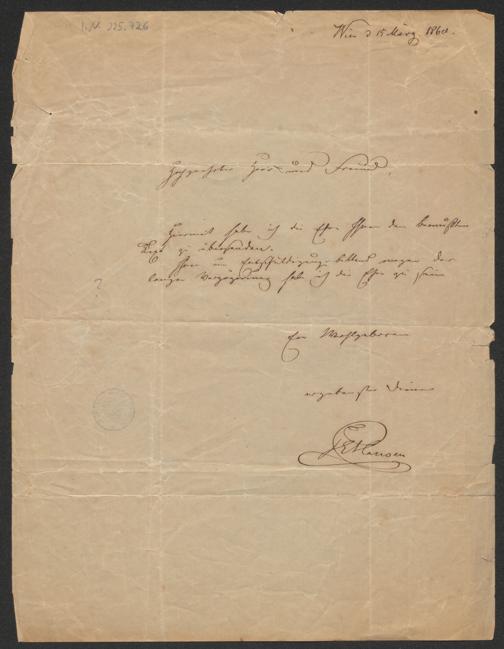 I.N. 125.726
Wien d 15 März 1860.
Hochgeehrter Herr und Freund,
Hiermit habe ich die Ehre Ihnen den bewußten
zu übersenden.
Ihnen um Entschuldigung bittend wegen der
langen Verzögerung habe ich die Ehre zu sein
?
Euer Wohlgeboren
ergebenster Diener
Hansen